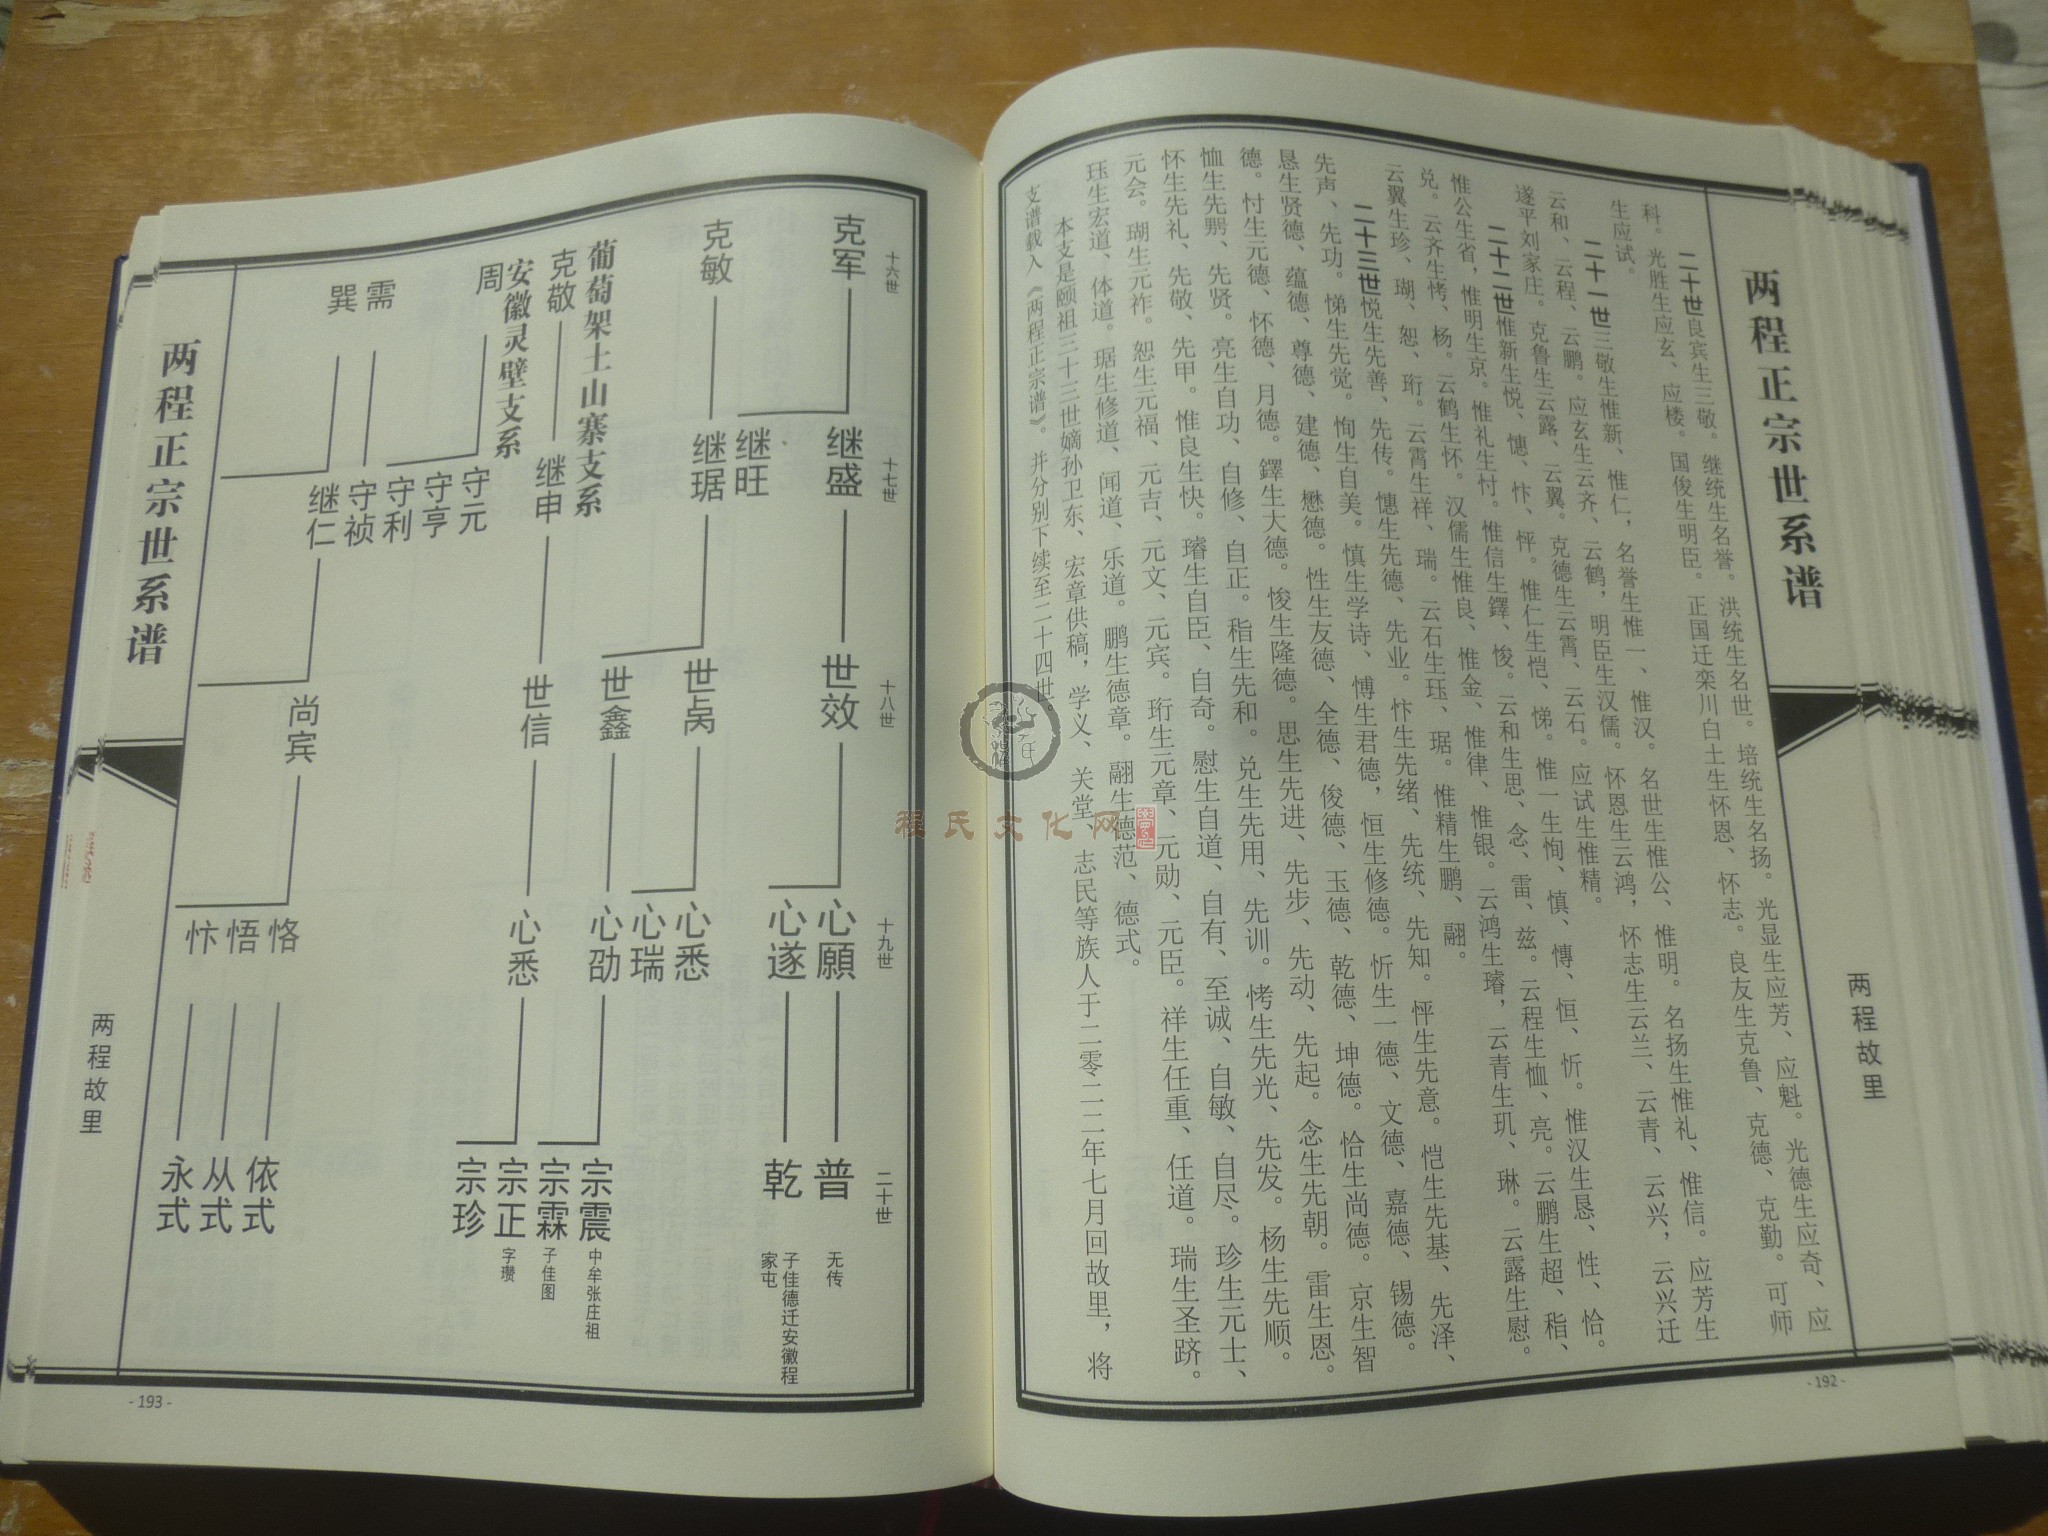 两程正宗世系谱
两程故里
二十世良宾生三敬。继统生名誉。洪统生名世。培统生名扬。光显生应芳、应魁。光德生应奇、应
科。光胜生应玄、应楼。国俊生明臣。正国迁栾川白土生怀恩、怀志。良友生克鲁、克德、克勤。可师
生应试。
二十一世三敬生惟新、惟仁,名誉生惟一、惟汉。名世生惟公、惟明。名扬生惟礼、惟信。应芳生
云和、云程、云鹏。应玄生云齐、云鹤,明臣生汉儒。怀恩生云鸿,怀志生云兰、云青、云兴,云兴迁
遂平刘家庄。克鲁生云露、云翼。克德生云霄、云石。应试生惟精。
二十二世惟新生悦、憓、忭、怦。惟仁生恺、悌。惟一生恂、慎、慱、恒、忻。惟汉生恳、性、恰。
惟公生省,惟明生京。惟礼生忖。惟信生鐸、悛。云和生思、念、雷、兹。云程生恤、亮。云鹏生超、稭、
兑。云齐生栲、杨。云鹤生怀。汉儒生惟良、惟金、惟律、惟银。云鸿生璿,云青生玑、琳。云露生慰。
云翼生珍、瑚、恕、珩。云霄生祥、瑞。云石生珏、琚。惟精生鹏、翮。
二十三世悦生先善、先传。憓生先德、先业。忭生先绪、先统、先知。怦生先意。恺生先基、先泽、
先声、先功。悌生先觉。恂生自美。慎生学诗、慱生君德,恒生修德。忻生一德、文德、嘉德、锡德。
恳生贤德、蕴德、尊德、建德、懋德。性生友德、全德、俊德、玉德、乾德、坤德。恰生尚德。京生智
德。忖生元德、怀德、月德。鐸生大德。悛生隆德。思生先进、先步、先动、先起。念生先朝。雷生恩。
恤生先罤、先贤。亮生自功、自修、自正。稭生先和。兑生先用、先训。栲生先光、先发。杨生先顺。
怀生先礼、先敬、先甲。惟良生快。璿生自臣、自奇。慰生自道、自有、至诚、自敏、自尽。珍生元士、
元会。瑚生元祚。恕生元福、元吉、元文、元宾。珩生元章、元勋、元臣。祥生任重、任道。瑞生圣跻。
珏生宏道、体道。琚生修道、闻道、乐道。鹏生德章。翮生德范、德式。
本支是颐祖三十三世嫡孙卫东、宏章供稿,学义、关堂、志民等族人于二零二二年七月回故里,将
支谱载入《两程正宗谱》。并分别下续至二十四世。
- 192 -
十六世
十七世
十八世
十九世
二十世
克军
继盛
继旺
世效
心願
心遂
普
无传
乾
子佳德迁安徽程
家屯
克敏
继琚
世鑫
心悉
心瑞
心劭
宗震
中牟张庄祖
宗霖
子佳图
葡萄架土山寨支系
克敬
继申
世信
心悉
宗正
字瓒
宗珍
安徽灵璧支系
周
守元
守亨
守利
需
守祯
巽
继仁
尚宾
恪
悟
忭
依式
从式
永式
两程正宗世系谱
两程故里
- 193 -
程氏文化网